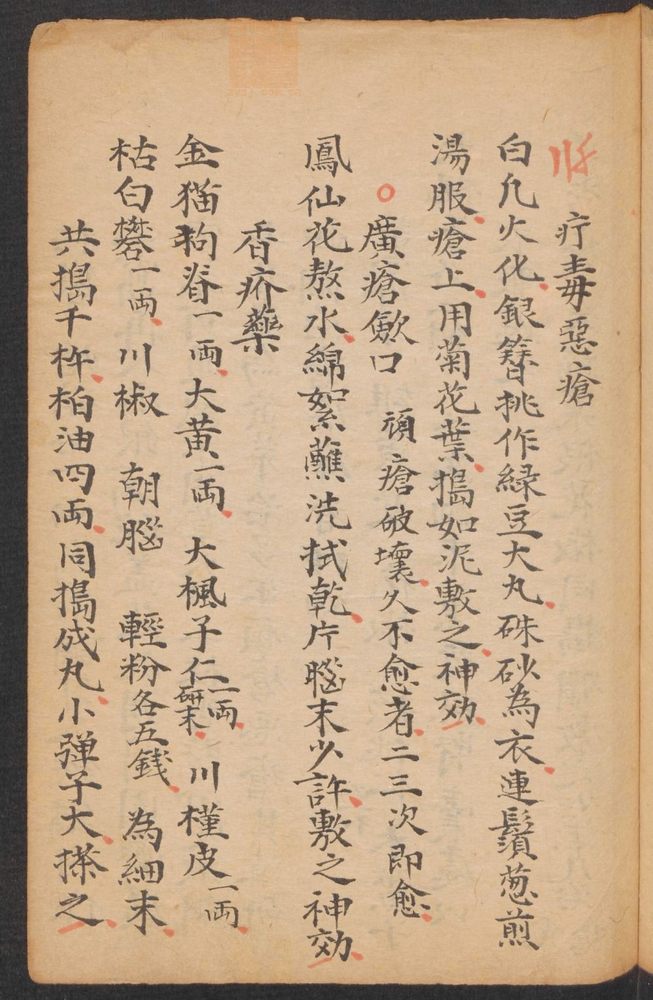 疔毒惡瘡
白凡火化銀簪挑作綠豆大丸硃砂為衣連鬚葱煎
湯服瘡上用菊花葉搗如泥敷之神効
廣瘡歛口 頑瘡破壞久不愈者二三次即愈
鳳仙花熬水綿絮蘸洗拭乾片腦末少許敷之神効
香疥藥
金猫狗脊一両大黃一両 大楓子仁一両研末 川槿皮一両
枯白礬一両川椒 朝腦 輕粉各五錢 為細末
共搗千杵柏油四両同搗成丸小弹子大搽之